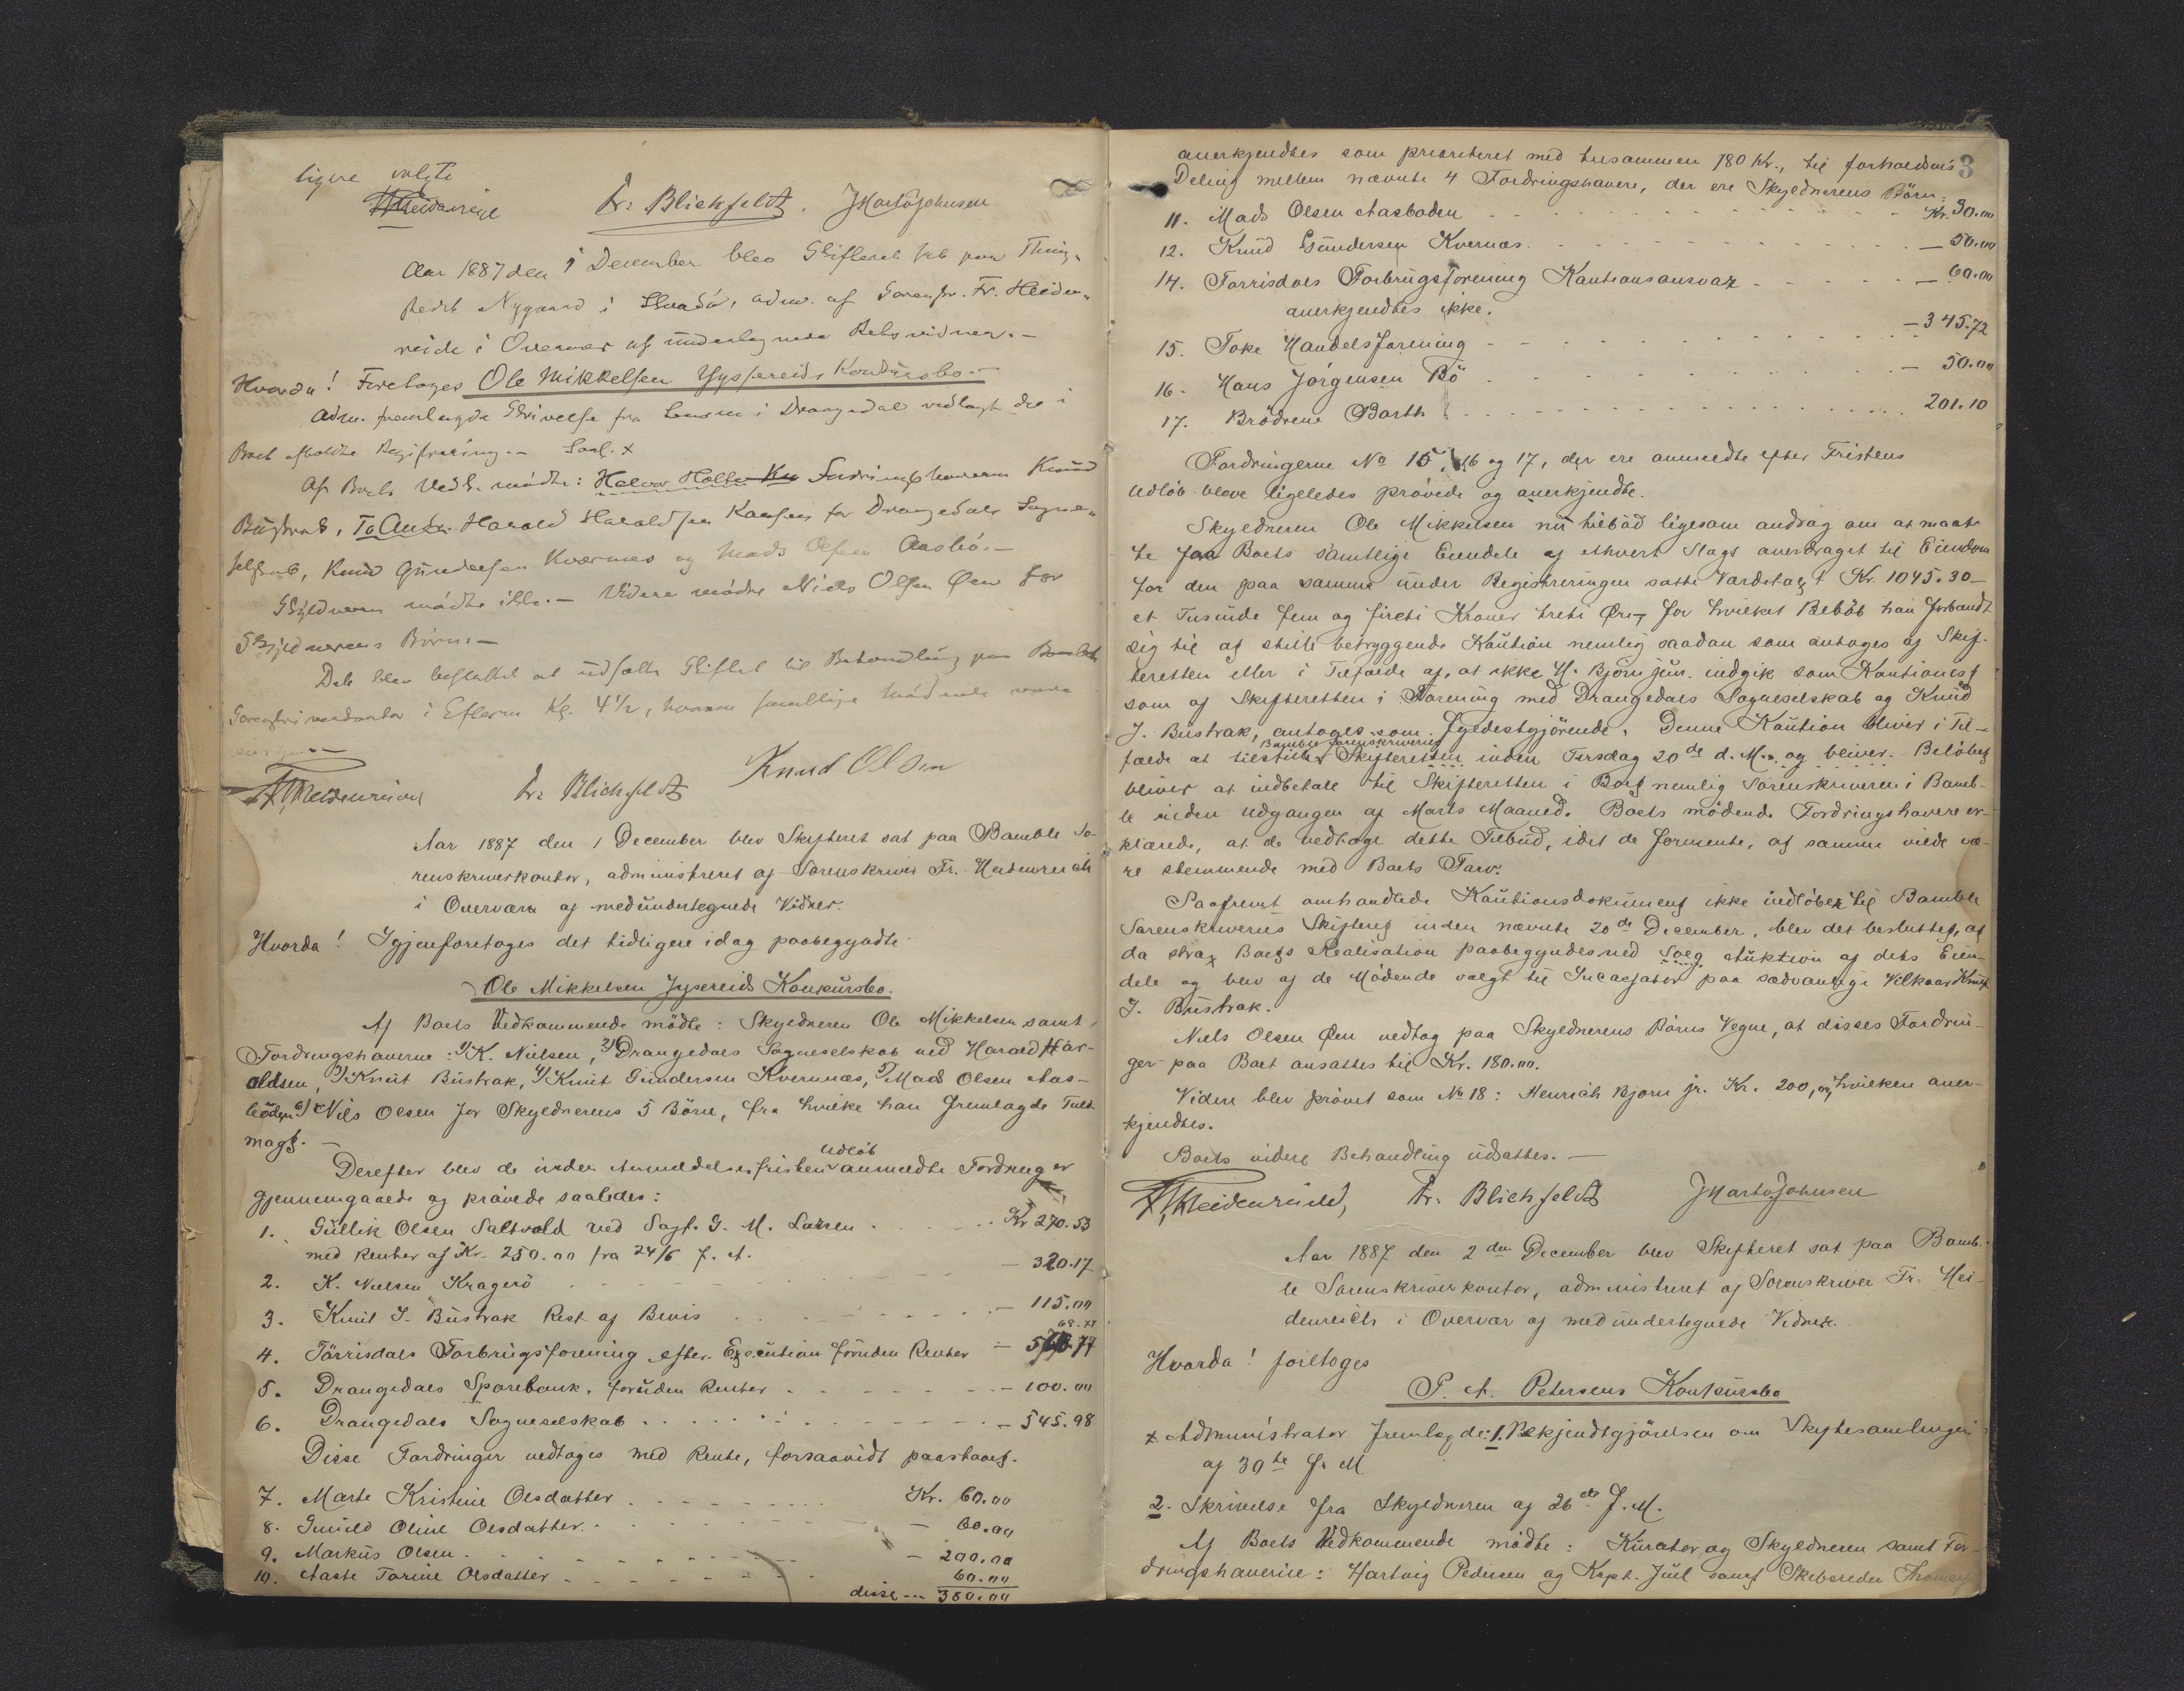 ligere valgte
Fr. Blichfeldt. J Marto Johnsen
Aar 1887 den 1 December blev Skifteret sat paa Thing-
stedet Nygaard i , adm. af Sorenskr. Fr. Heiden-
reich i Overvær af undertegnede Retsvidner. —
Hvorda! Foretoges Ole Mikkelsen Gyssereids Konkursbo. —
Adm. fremlagde Skrivelse fra i Drangedal vedlagt de i
Boet afholdte Registrering. —
Af Boets Vedk. mødte: Halvor Holte Kn Fordringshaveren Knud
Bustrak, Harald Haraldsen for Drangedals Sogne-
selskab, Knud Gundersen Kvernæs og Mads Olsen Aasbö. —
Skyldneren mødte ikke. — Videre mødte Niels Olsen Øen for
Skyldnerens Börn. —
Det blev besluttet at udsætte Skiftet til Behandling paa Bamble
Sorenskriverkontor i Efterm Kl. 4 1/2, hvorom samtlige Mødende
Fr Heidenreich Fr. Blichfeldt Knud Olsen
Aar 1887 den 1 December blev Skifteret sat paa Bamble So-
renskriverkontor, administreret af Sorenskriver Fr. Heidenreich
i Overvær af medundertegnede Vidner.
Hvorda! Igjenforetoges det tidligere idag paabegyndte
Ole Mikkelsen Jysereids Konkursbo.
Af Boets Vedkommende mödte: Skyldneren Ole Mikkelsen samt
Fordringshaverne: 1) K. Nielsen, 2) Drangedals Sogneselskab ved Harald Har-
aldsen, 3) Knut Bustrak, 4) Knut Gundersen Kvernnæs, 5) Mads Olsen Aas-
böden 6) Nils Olsen for Skyldnerens 5 Börn, fra hvilke han fremlagde Fuld-
magt. —
Derefter blev de inden Anmeldelsesfristens Udlöb anmeldte Fordringer
gjennemgaaede og prövede saaledes:
1. Gullik Olsen Saltvold ved Sagf. G. M. Larsen . . . Kr 270.53
med Renter af Kr. 250.00 fra 24/6 f. A.
2. K. Nielsen Kragerö — 320.17
3. Knut J. Bustrak Rest af Bevis — 115.00
4. Törrisdals Forbrugsforening efter Execution foruden Renter — 68.77
5. Drangedals Sparebank, foruden Renter — 100.00
6. Drangedals Sogneselskab — 545.98
Disse Fordringer vedtoges med Rente, forsaavidt paastaaet.
7. Marte Kristine Olsdatter Kr. 60.00
8. Gunild Oline Olsdatter — 60.00
9. Markus Olsen — 200.00
10. Aaste Torine Olsdatter 60.00
disse — 380.00
3
anerkjendtes som prioriteret med tilsammen 180 Kr., til forholdsvis
Deling mellem nævnte 4 Fordringshavere, der ere Skyldnerens Börn.
11. Mads Olsen Aasboden Kr. 30.00
12. Knud Gundersen Kvernæs — 50.00
14. Torrisdals Forbrugsforening Kautionsansvar — 60.00
anerkjendtes ikke.
15. Toke Handelsforening — 345.72
16. Hans Jörgensen Bö — 50.00
17. Brödrene Barth 201.10
Fordringerne No 15, 16 og 17, der ere anmeldte efter Fristens
Udlöb bleve ligeledes prövede og anerkjendte.
Skyldneren Ole Mikkelsen nu tilböd ligesom andrag om at maat-
te faa Boets samtlige Eiendele af ethvert Slags overdraget til Eiendom
for den paa samme under Registreringen satte Værdetaxt Kr. 1045.30 —
et Tusinde fem og firti Kroner treti Öre, for hvilket Belöb han forbandt
sig til at stille betryggende Kaution nemlig saadan som antages af Skif-
teretten eller i Tilfælde af, at ikke H. Björn jun. indgik som Kautionist
som af Skifteretten i Forening med Drangedals Sogneselskab og Knud
J. Bustrak, antoges som fyldestgjörende. Denne Kaution bliver i Til-
Bamble Sorenskriveri
fælde at tilstille Skifteretten inden Tirsdag 20de d. M. og bliver Belöbet
bliver at indbetale til Skifteretten i Boet nemlig Sorenskriveren i Bamb-
le inden Udgangen af Marts Maaned. Boets mödende Fordringshavere er-
klærede, at de vedtoge dette Tilbud, idet de formente, at samme vilde væ-
re stemmende med Boets Tarv.
Saafremt omhandlede Kautionsdokument ikke indlöber til Bamble
Sorenskriveris Skifteret inden nævnte 20de December, blev det besluttet, at
da strax Boets Realisation paabegyndes ved Salg Auktion af dets Eien-
dele og blev af de Mödende valgt til Incassator paa sædvanlige Vilkaar Knut
J. Bustrak.
Niels Olsen Öen vedtog paa Skyldnerens Börns Vegne, at disses Fordrin-
ger paa Boet ansattes til Kr. 180.00.
Videre blev prövet som No 18: Henrich Bjorn jr. Kr. 200,00, hvilken aner-
kjendtes.
Boets videre Behandling udsattes. —
Fr Heidenreich, Fr. Blichfeldt J Marto Johnsen
Aar 1887 den 2den December blev Skifteret sat paa Bamb-
le Sorenskriverkontor, administreret af Sorenskriver Fr. Hei-
denreich i Overvær af medundertegnede Vidner.
Hvorda! foretoges
P. A. Petersens Konkursbo
x Administrator fremlagde: 1. Bekjendtgjörelsen om Skiftesamlingen
af 30te f. M
2. Skrivelse fra Skyldneren af 26de f. M.
Af Boets Vedkommende mödte: Kurator og Skyldneren samt For-
dringshaverne: Hartvig Pedersen og Kapt. Juel samt Skibsreder Thomesen